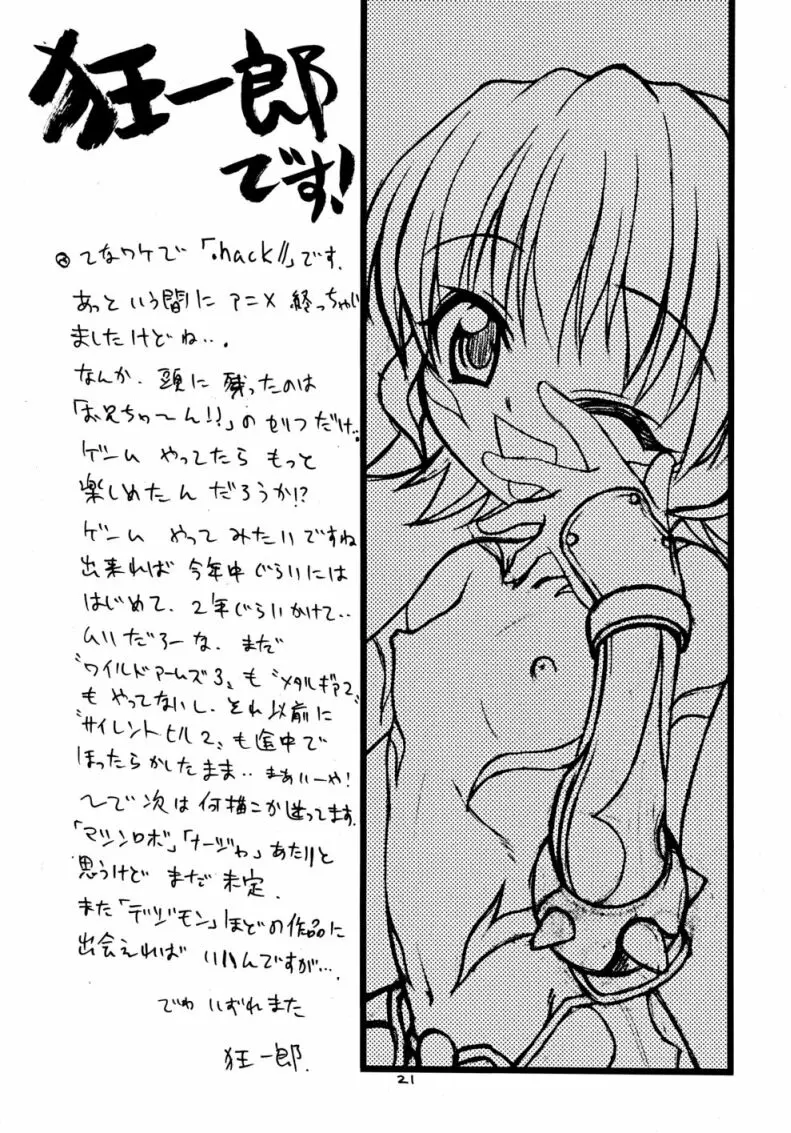 狂一郎
です!
てなワケで「.hack//」です.
あっという間にアニメ終っちゃい
ましたけどね….
なんか. 頭に残ったのは
「お兄ちゃ～ん!!」のセリフだけ。
ゲームやってたらもっと
楽しめたんだろうか!?
ゲームやってみたいですね
出来れば今年中ぐらいには
はじめて. 2年ぐらいかけて‥
ムリだろーな. まだ
〝ワイルドアームズ3〟も〝メタルギア2〟
もやってないし. それ以前に
〝サイレントヒル2〟も途中で
ほったらかしたまま‥まぁいーや!
～で次は何描こか迷ってます.
「マシンロボ」「ナージャ」あたりと
思うけどまだ未定.
また「デジモン」ほどの作品に
出会えればいいんですが….
でわいずれまた
狂一郎.
21